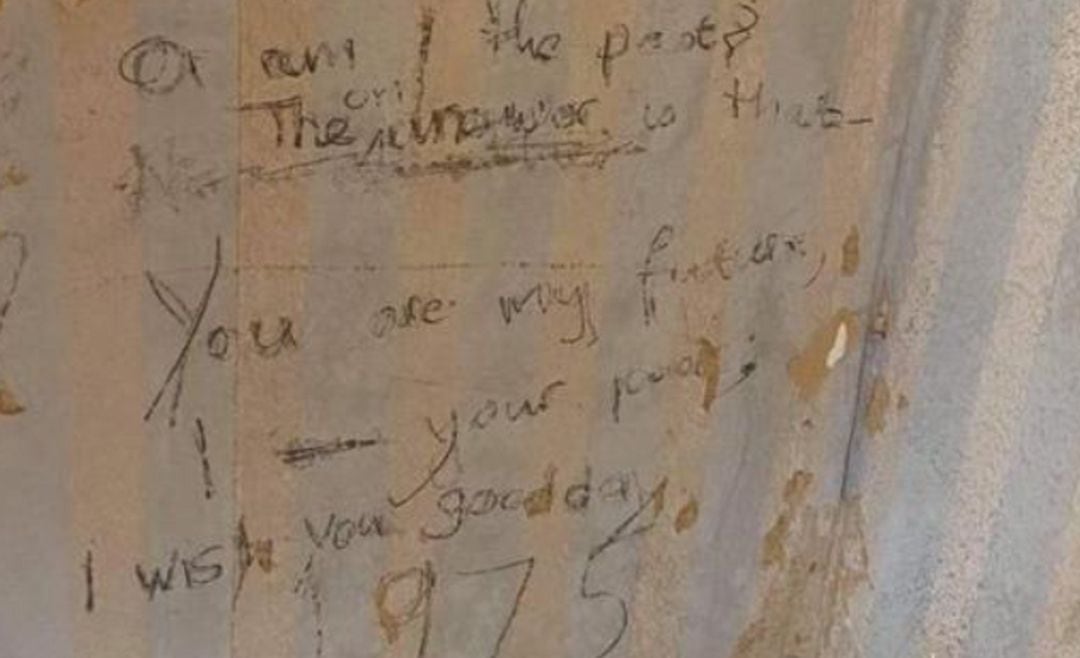 Or am I the past?
The answer is that—
You are my future,
I — your past;
I wish you good day.
1975